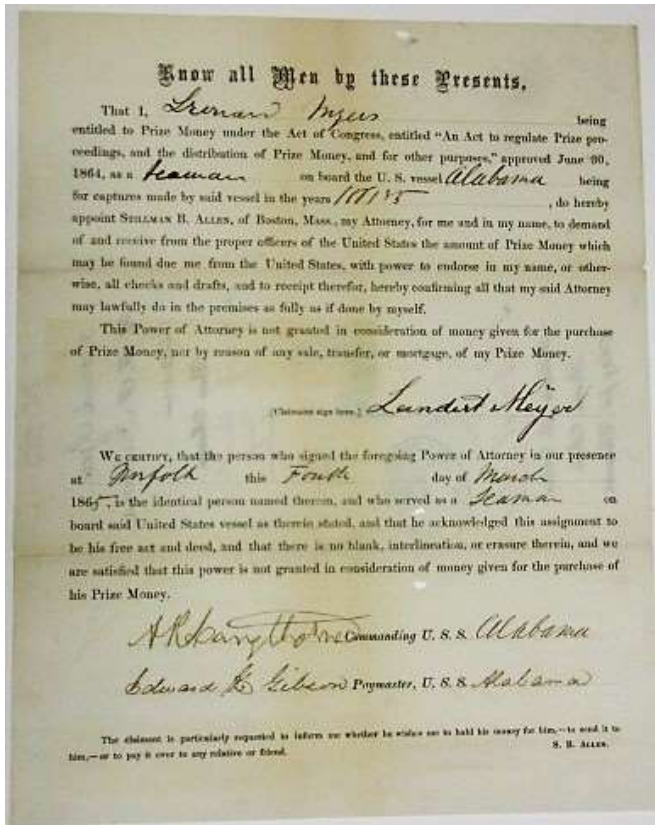 Know all Men by these Presents,
That I, Myers being
entitled to Prize Money under the Act of Congress, entitled "An Act to regulate Prize pro-
ceedings, and the distribution of Prize Money, and for other purposes," approved June 30,
1864, as a Seaman on board the U. S. vessel Alabama being
for captures made by said vessel in the years , do hereby
appoint STILLMAN B. ALLEN, of BOSTON, MASS., my Attorney, for me and in my name, to demand
of and receive from the proper officers of the United States the amount of Prize Money which
may be found due me from the United States, with power to endorse in my name, or other-
wise, all checks and drafts, and to receipt therefor, hereby confirming all that my said Attorney
may lawfully do in the premises as fully as if done by myself.
This Power of Attorney is not granted in consideration of money given for the purchase
of Prize Money, nor by reason of any sale, transfer, or mortgage, of my Prize Money.
[Claimants sign here.] Lendert Meyer
WE CERTIFY, that the person who signed the foregoing Power of Attorney in our presence
at Norfolk this Fourth day of March
1865, is the identical person named therein, and who served as a Seaman on
board said United States vessel as therein stated, and that he acknowledged this assignment to
be his free act and deed, and that there is no blank, interlineation, or erasure therein, and we
are satisfied that this power is not granted in consideration of money given for the purchase of
his Prize Money.
Commanding U. S. S. Alabama
Edward H. Gibson Paymaster, U. S. S. Alabama
The claimant is particularly requested to inform me whether he wishes me to hold his money for him,—to send it to
him,—or to pay it over to any relative or friend. S. B. ALLEN.